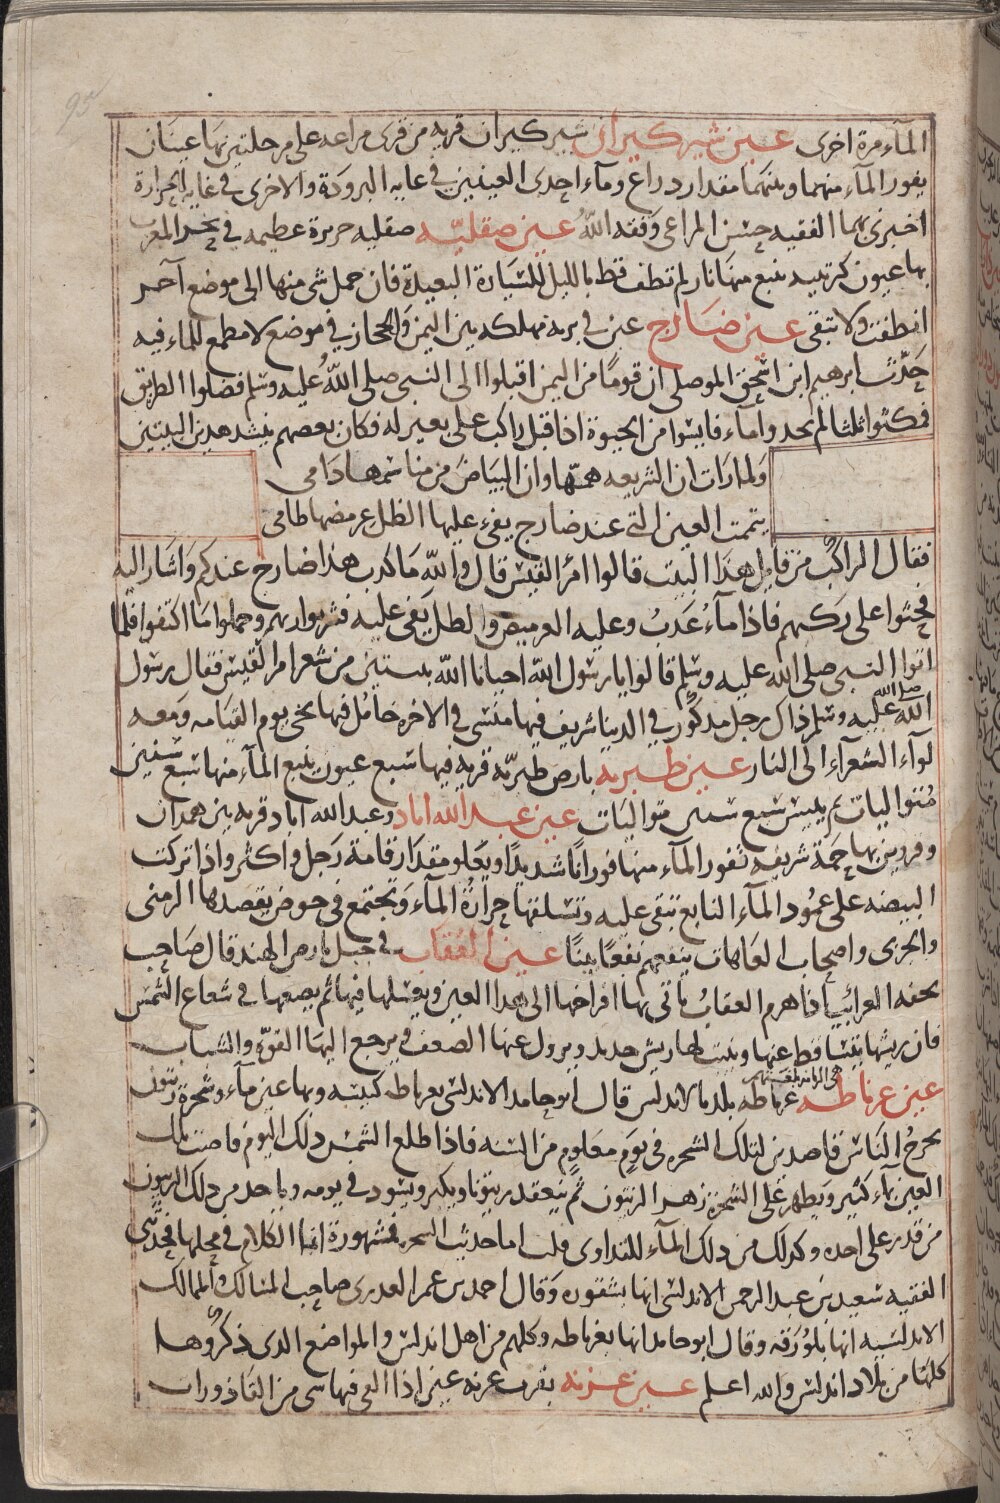 المآء مرة اخرى عين شيركيران شيركيران قرية من قرى مراغه على مرحلتين بها عينان
يفور المآء منهما وبينهما مقدار دراع ومآء احدى العينين فى غايه البرودة والاخرى فى غايه الحرارة
اخبرنى بهما الفقيه حسن المراعى وفقه الله عين صقليّه صقليه جزيرة عظيمه فى بحر المغرب
بها عيون كبريتيه ينبع منها نار لم تطف قط بالليل للسيارة البعيدة فان حمل شى منها الى موضع آخر
انطفت ولا تبقى عين ضارج عين فى بريه مهلكه بين اليمن والحجاز فى موضع لا مطمع للماء فيه
حدّث ابرهيم ابن اسحق الموصلى ان قومًا من اليمن اقبلوا الى النبى صلى اللهُ عليه وسلم فضلوا الطريق
فمكثوا ثلثا لم يجدوا مآء فايسوا من الحيوة اذ اقبل راكب على بعير له فكان بعضهم ينشد هدين البيتين
ولما رات ان الشريعه همّها وان البياضَ من فرائصها دامى
يتممت العين التى عند ضارج يفىء عليها الظل عرمضها طامى
فقال الراكبُ من قايل هذا البيت قالوا امرُ القيس قال والله ما كدب هذا ضارج عندكم واشار اليه
فجثوا على ركبهم فاذا مآءُ عَدبُ وعليه العرمض والظل يفىء عليه فشربوا ريهم وحملوا ما اكتفوا فلما
اتوا النبى صلى الله عليه وسلم قالوا يا رسول الله احيانا الله ببيتين من شعر امرا القيس فقال رسول
الله صلى الله عليه وسلم ذاك رجل مدكورٌ فى الدنيا شريف فيها منسى فى الاخره خامُل فيها يجى يوم القيامه ومعه
لوآء الشعرآء الى النار عين طبريه بارض طبريّه قريه فيها سبع عيون ينبع المآء منها سبع سنين
مُتواليات ثم ييبس سبع سنين متواليات عين عبد الله اباد وعبد الله اباد قريه بين همدان
وقزوين بها حمة شريفه تفور المآء منها فورانًا شديدًا ويعلو مقدار قامة رَجل واكثر واذا تركت
البيضه على عمُود المآء النابع تبقى عليه وتسلقها حرارةُ المآء وَتجتمع فى حوض يقصدها الزمنى
والجربى واصحاب العاهات ينفعهم نفعًا بينًا عين العُقاب فى جبل بارض الهند قال صاحب
تحفه العرائب اذا هرم العقابُ ياتى بها افراخها الى هدا العين ويغسلها فيها ثم يضعها فى شعاع الشمس
فان ريشها يتساقط عنها وينبت لها ريش جديد ويزول عنها الضعف ويرجع اليها القوّه والشباب
عين غرناطه غرناطه بلد بالاندلس قال ابو حامد الاندلسى بغرناطه كنيسه وبها عين مآء وشجرة زيتون
يخرجُ الناس قاصدين لتلك الشجره فى يوم معلوم من السنه فاذا طلع الشمس دلك اليوم فاضت تلك
العين بماء كثير ويظهر على الشجرة زهر الزيتون ثم ينعقد زيتونا ويكبر ويسود فى يومه وياخد من دلك الزيتون
من قدر على اخده وكدلك من دلك المآء للتداوى قلت اما حديث الشجره فمشهورة انما الكلام فى محلها فحدثنى
الفقيه سعيد بن عبد الرحمن الاندلسى انها بشقوره وقال احمد بن عمر العدرى صاحب المسالك والممالك
الاندلسيه انها بلوُرَقه وقال ابو حامد انها بغرناطه وكلهم من اهل اندلس والمواضع الدى ذكروُها
كلها من بلاد اندلس والله اعلم عين غزنه بقرب غزنه عين اذا القى فيها شى من القاذورات